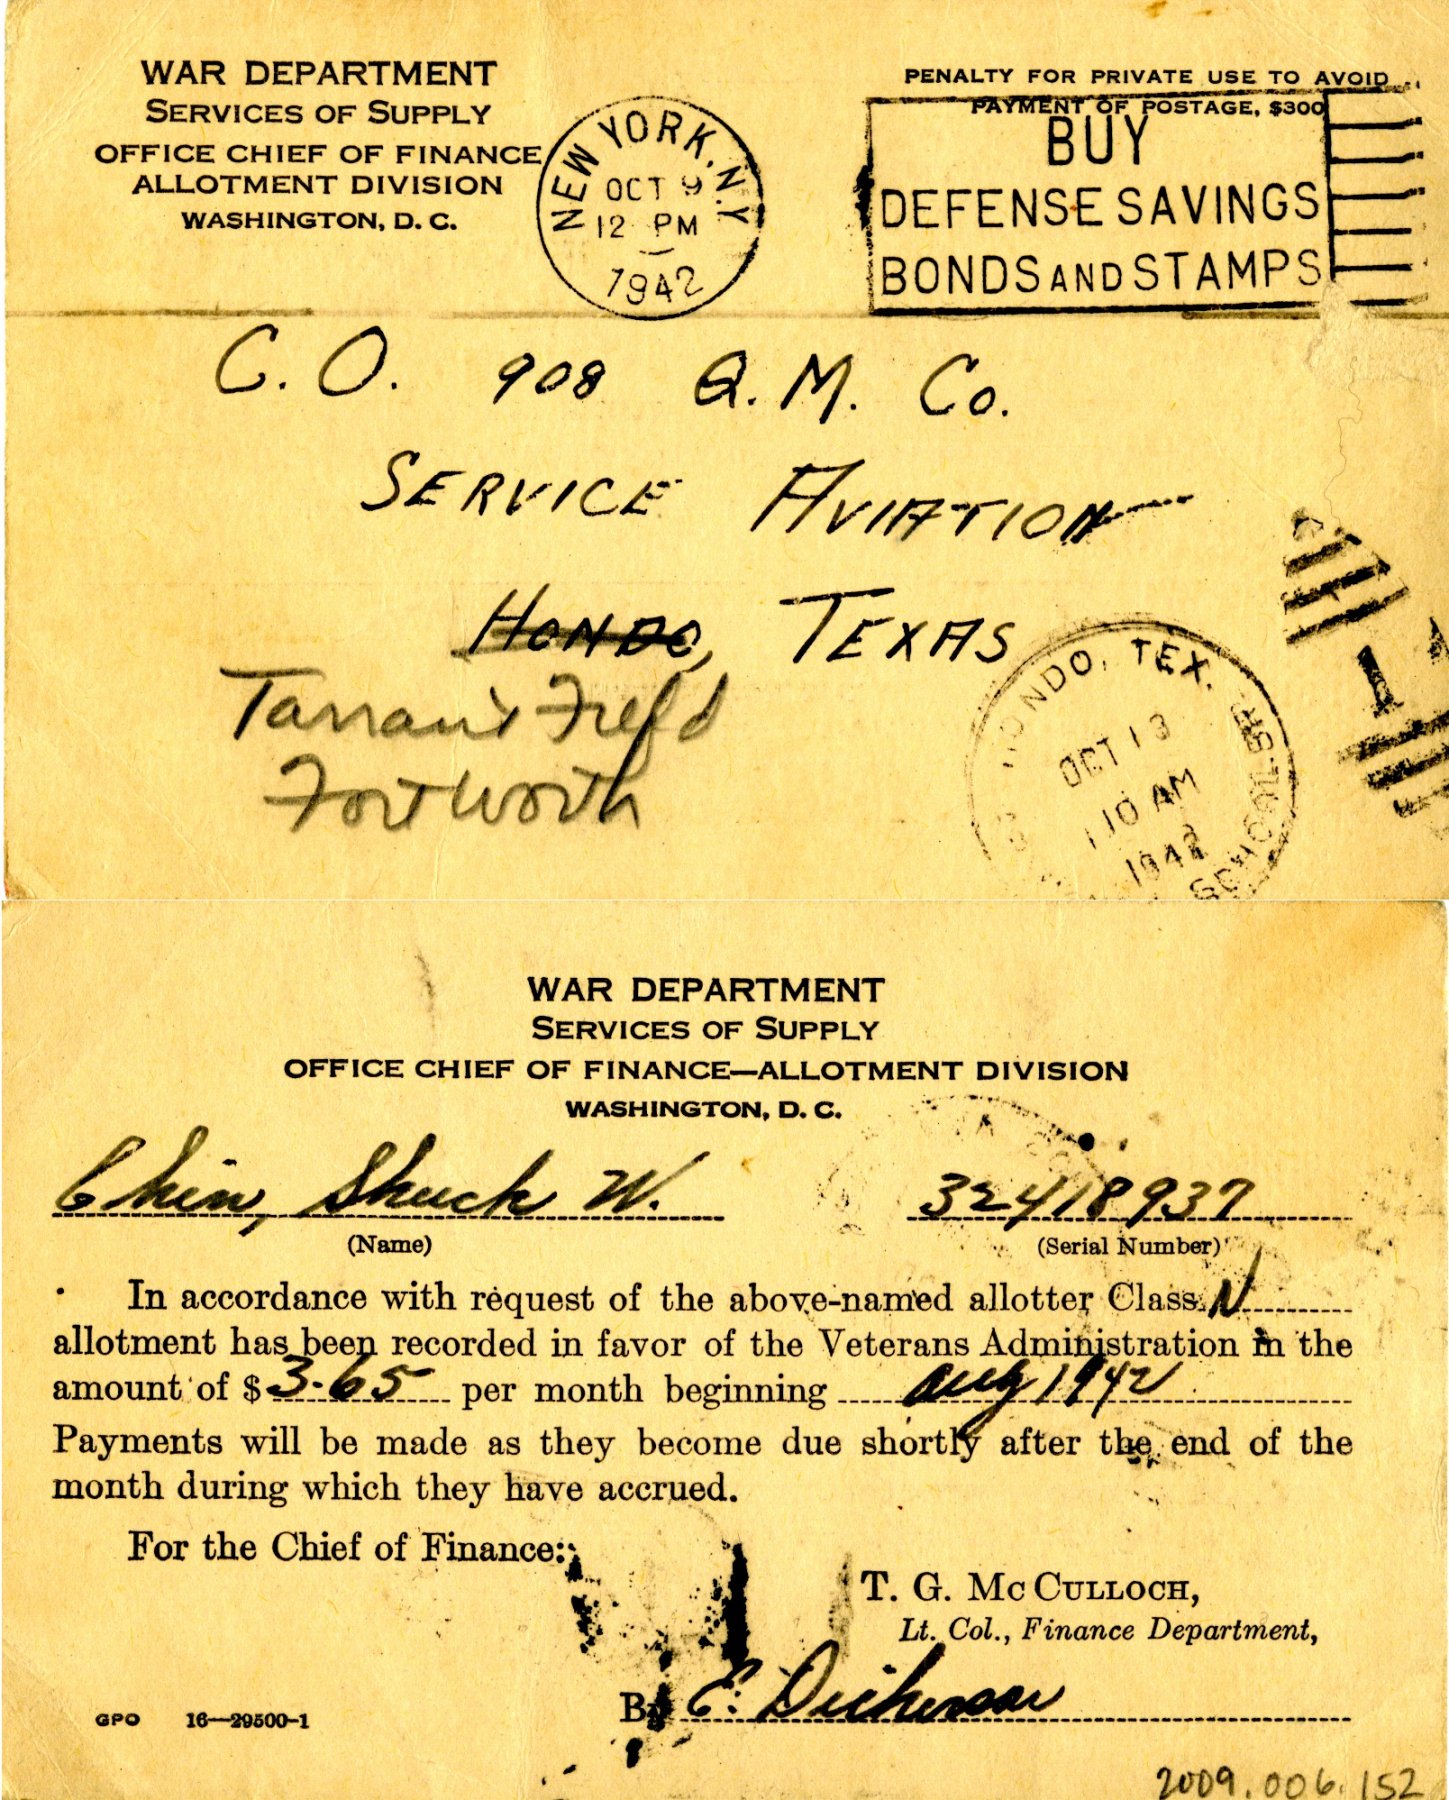 WAR DEPARTMENT
SERVICES OF SUPPLY
OFFICE CHIEF OF FINANCE
ALLOTMENT DIVISION
WASHINGTON, D. C.
NEW YORK, N.Y.
OCT 9
12 PM
1942
PENALTY FOR PRIVATE USE TO AVOID
PAYMENT OF POSTAGE, $300
BUY
DEFENSE SAVINGS
BONDS AND STAMPS
C. O. 908 Q. M. Co.
SERVICE AVIATION
HONDO, TEXAS
Tarrant Field
Fort Worth
HONDO, TEX.
OCT 13
10 AM
1942
SCHOOL BR.
1
WAR DEPARTMENT
SERVICES OF SUPPLY
OFFICE CHIEF OF FINANCE—ALLOTMENT DIVISION
WASHINGTON, D. C.
Chin, Shuck W. 32418937
(Name) (Serial Number)
In accordance with request of the above-named allotter Class N
allotment has been recorded in favor of the Veterans Administration in the
amount of $3.65 per month beginning Aug 1942
Payments will be made as they become due shortly after the end of the
month during which they have accrued.
For the Chief of Finance:
T. G. MCCULLOCH,
Lt. Col., Finance Department,
By E. Dickerson
GPO 16—29500-1
2009.006.152